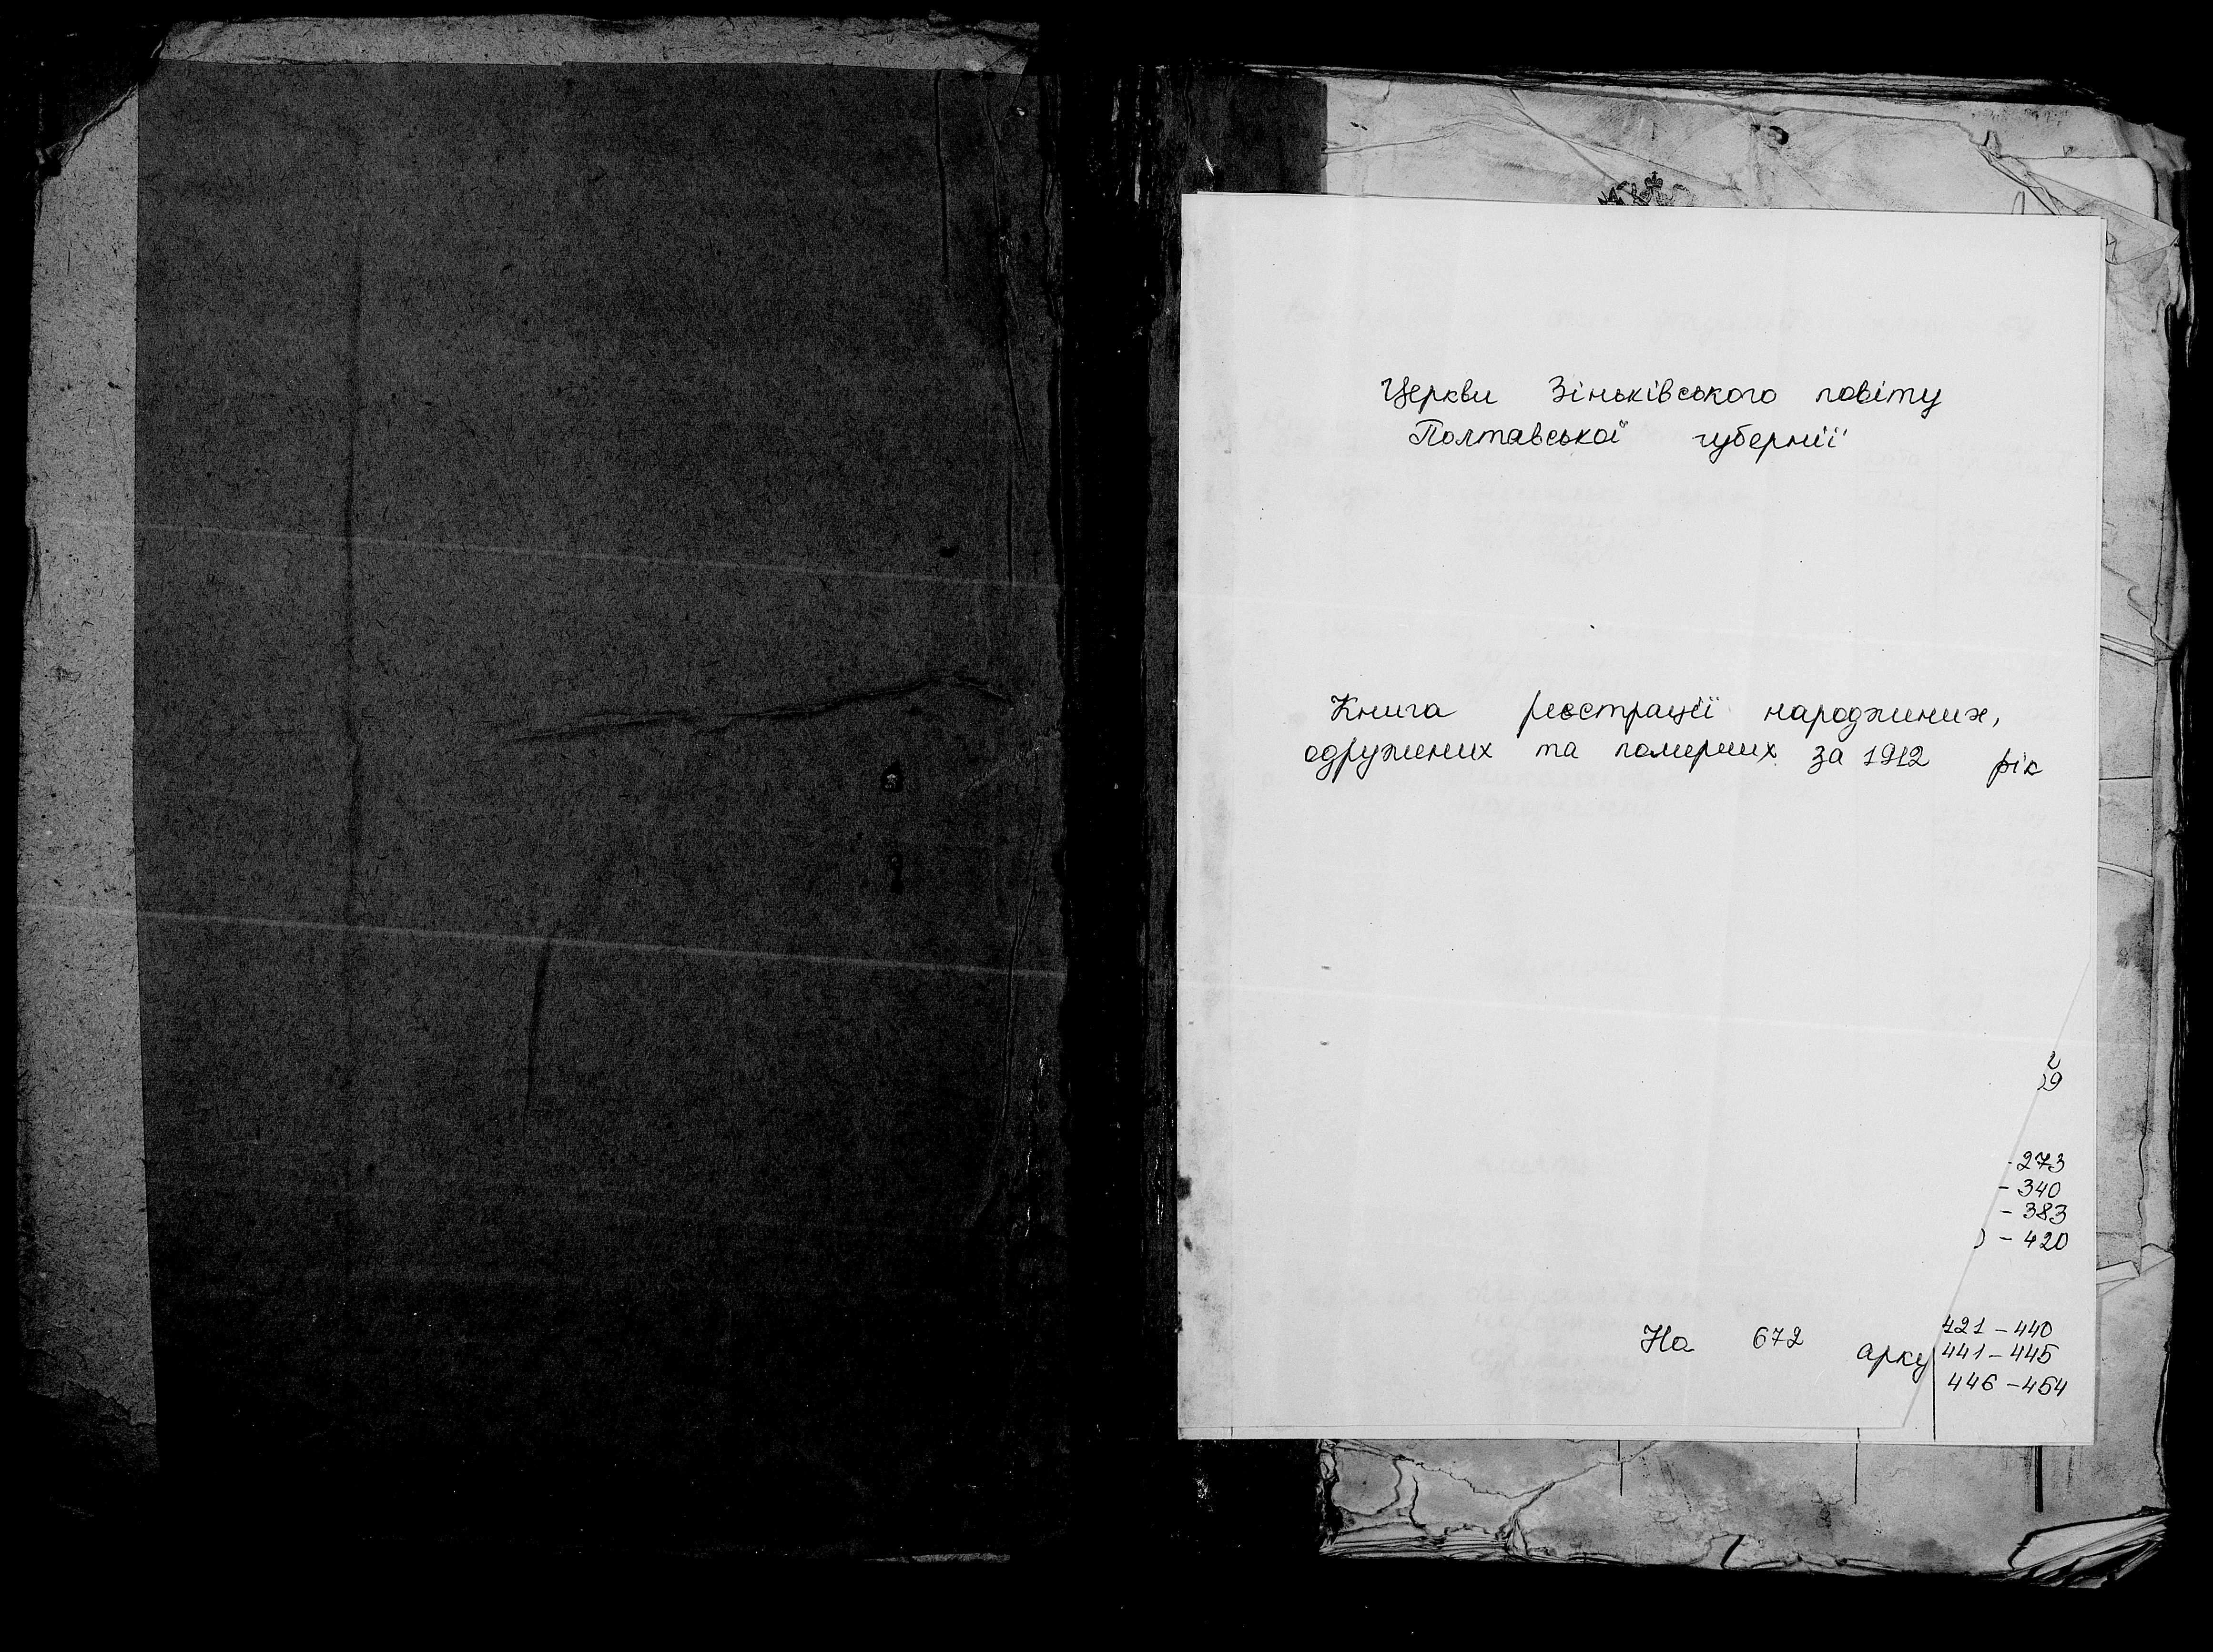 Церкви Зіньківського повіту
Полтавської губернії
Книга реєстрації народжених,
одружених та померших за 1912 рік
2
9
- 273
- 340
- 383
- 420
На 672 арку
421 - 440
441 - 445
446 - 454